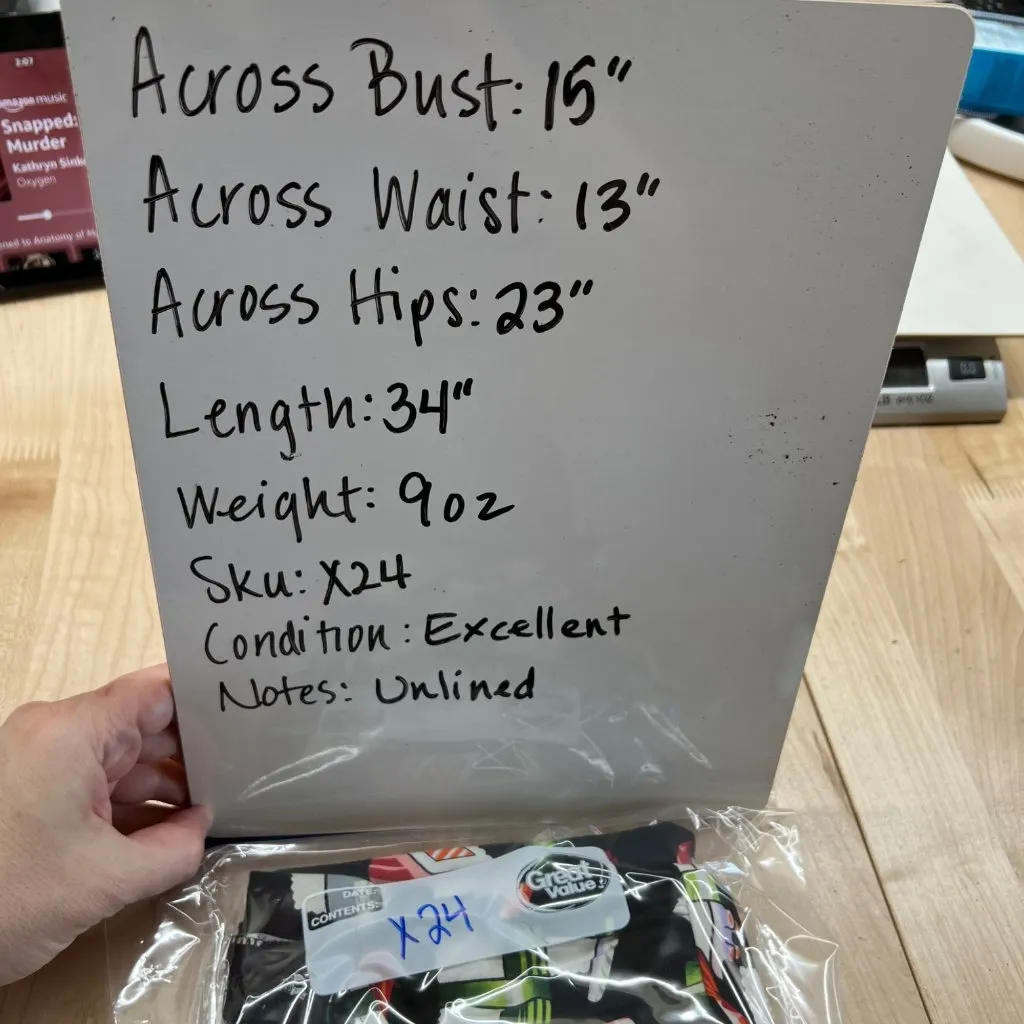 2:07
amazon music
Snapped:
Murder
Kathryn Sink
Oxygen
Across Bust: 15"
Across Waist: 13"
Across Hips: 23"
Length: 34"
Weight: 9oz
Sku: X24
Condition: Excellent
Notes: Unlined
DATE:
CONTENTS:
X24
Great
Value